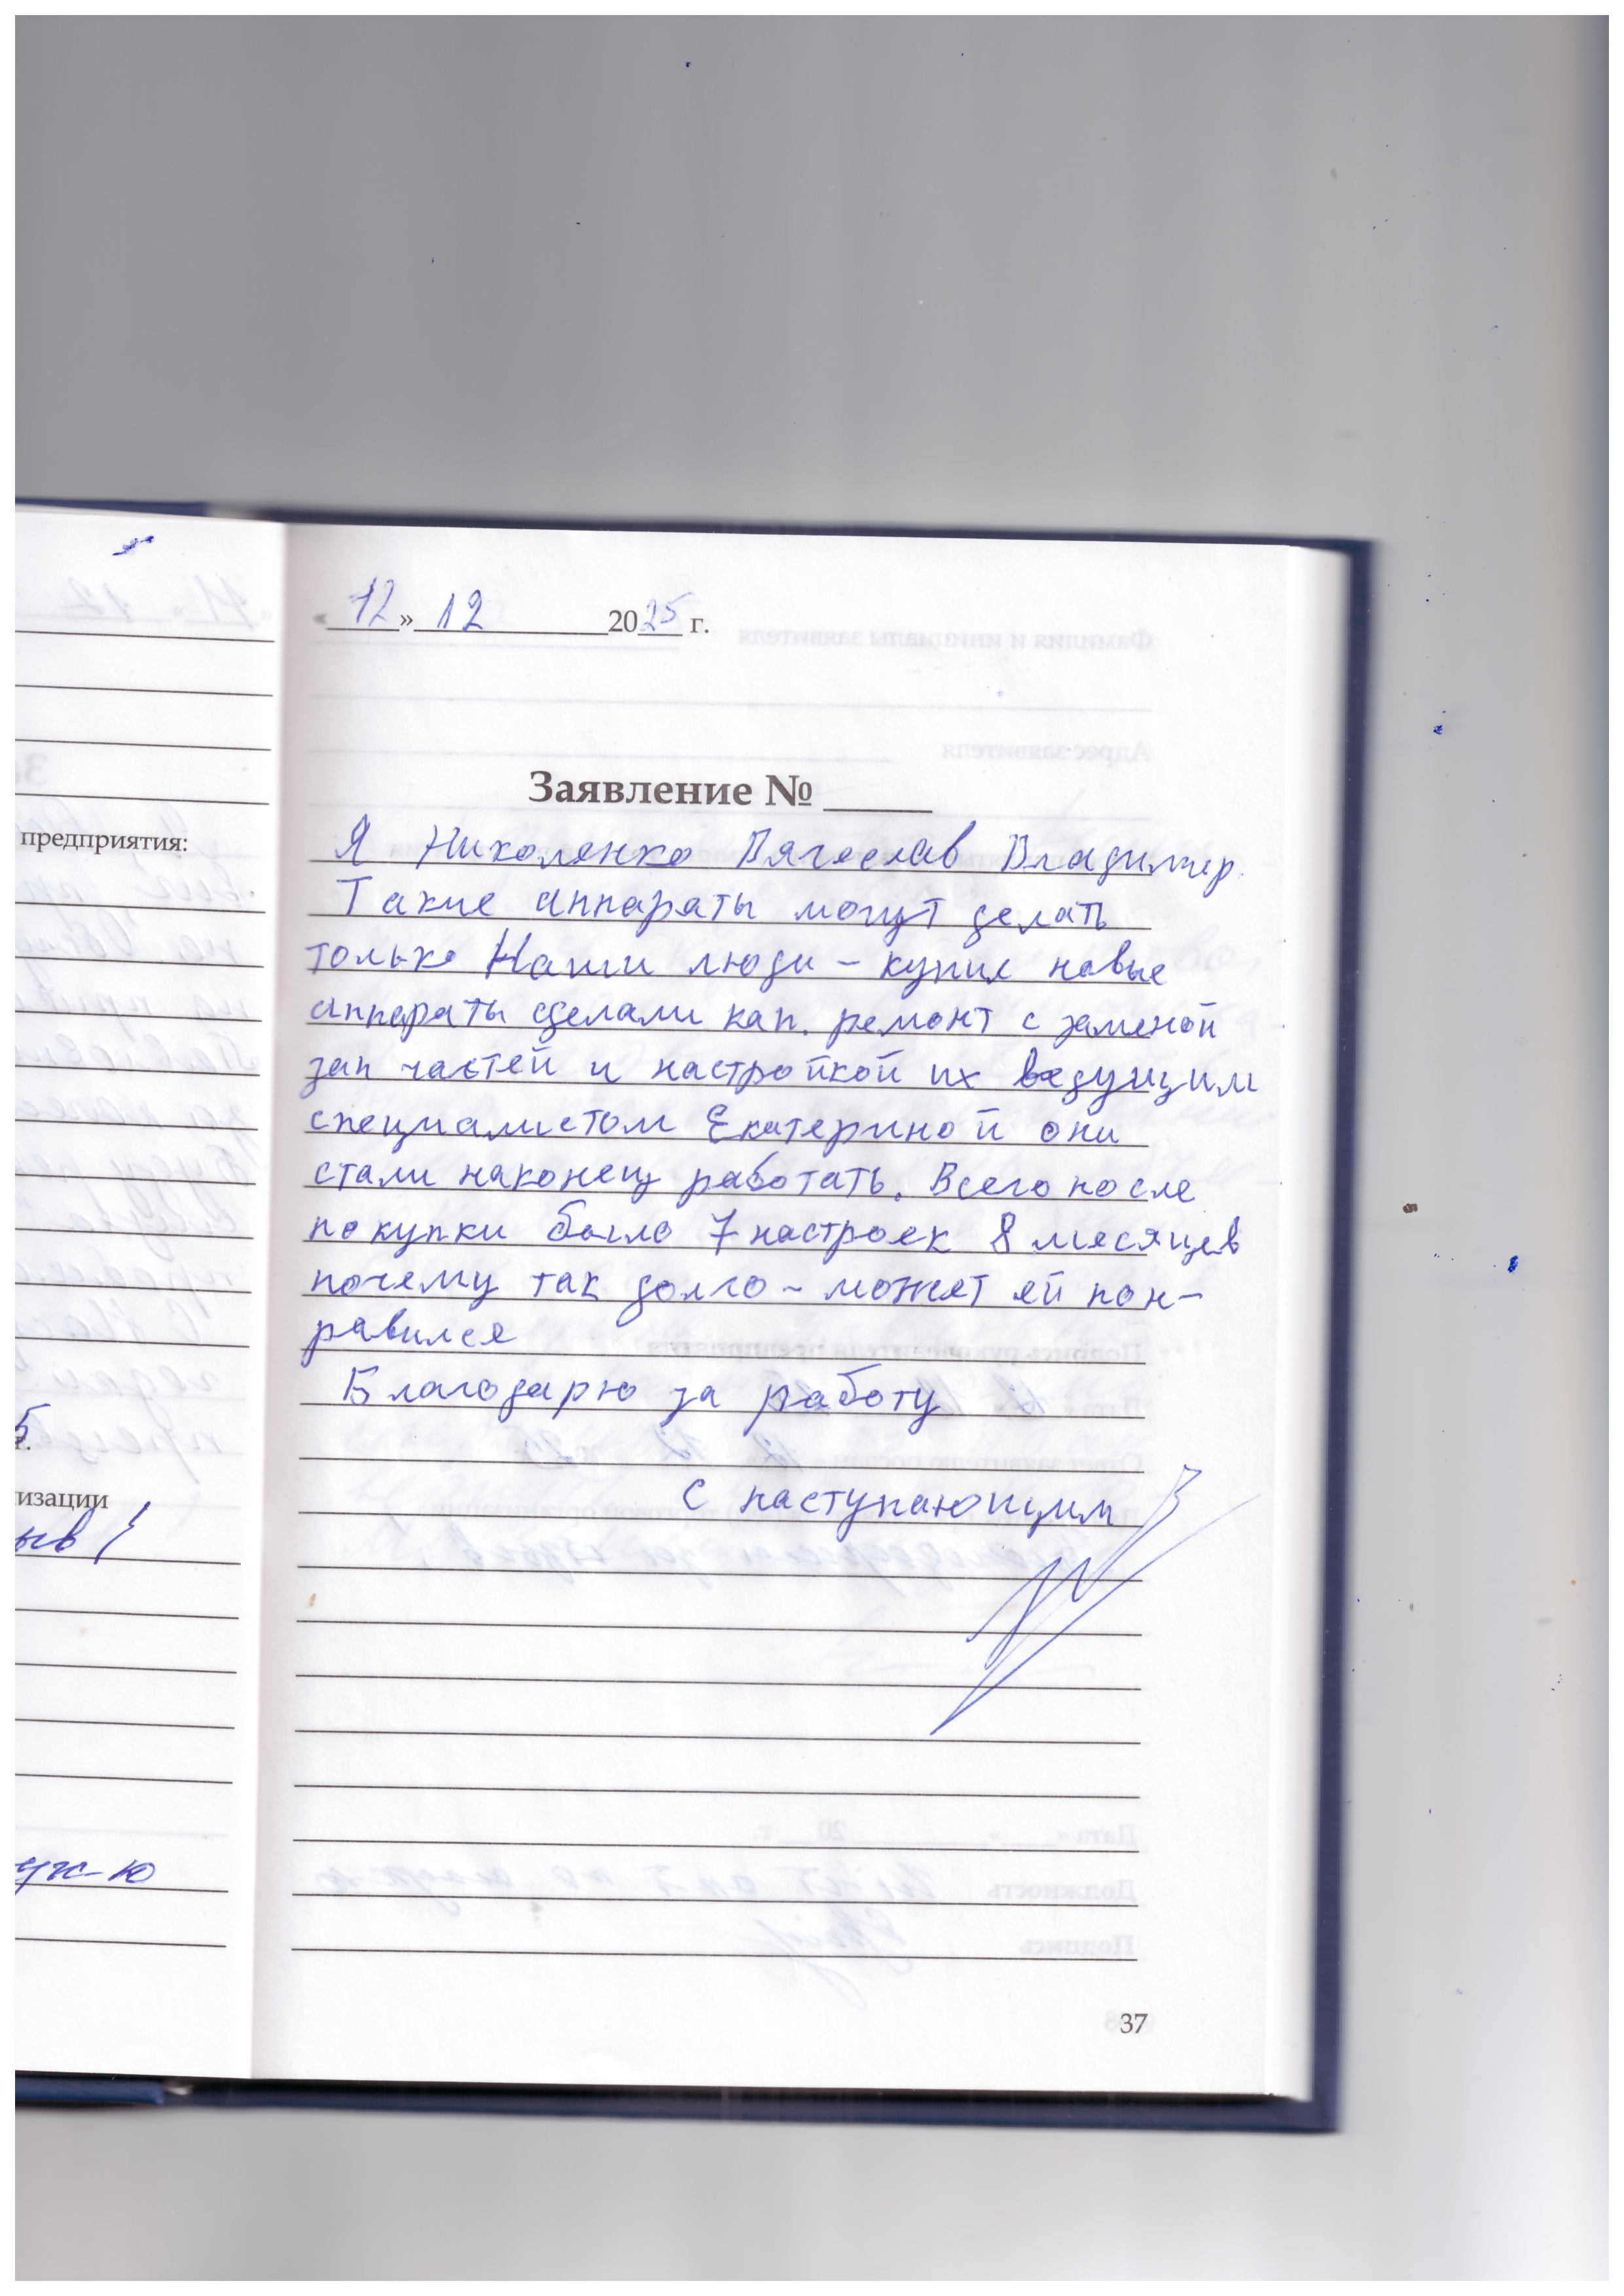 «12» 12 2025 г.
Заявление № ____
Я Николенко Вячеслав Владимир.
Такие аппараты могут делать
только Наши люди – купил новые
аппараты сделали кап. ремонт с заменой
зап частей и настройкой их ведущим
специалистом Екатериной они
стали наконец работать. Всего после
покупки было 7 настроек 8 месяцев
почему так долго – может ей пон-
равился
Благодарю за работу
С наступающим
37
предприятия:
5
г.
изации
ыв!